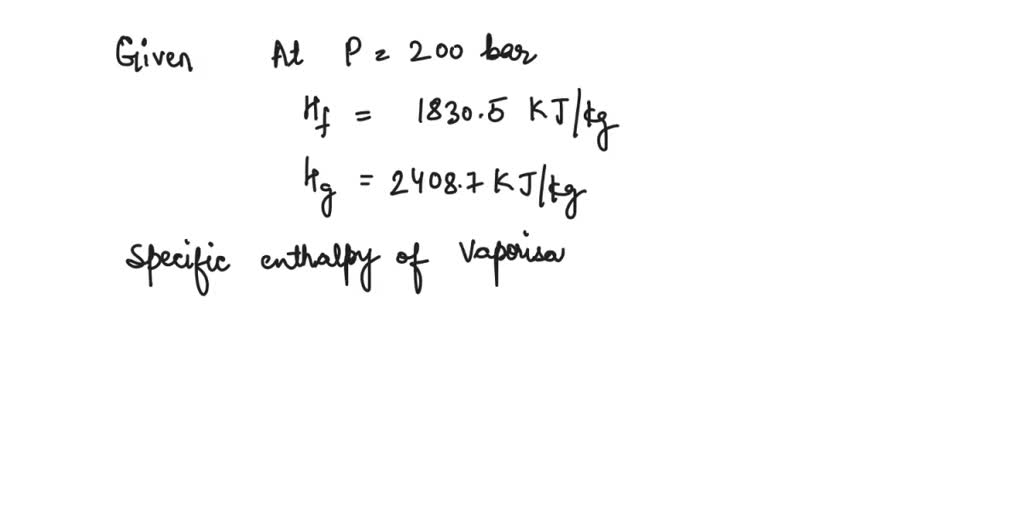 Given At P = 200 bar
Hf = 1830.5 KJ/kg
hg = 2408.7 KJ/kg
Specific enthalpy of Vaporisa